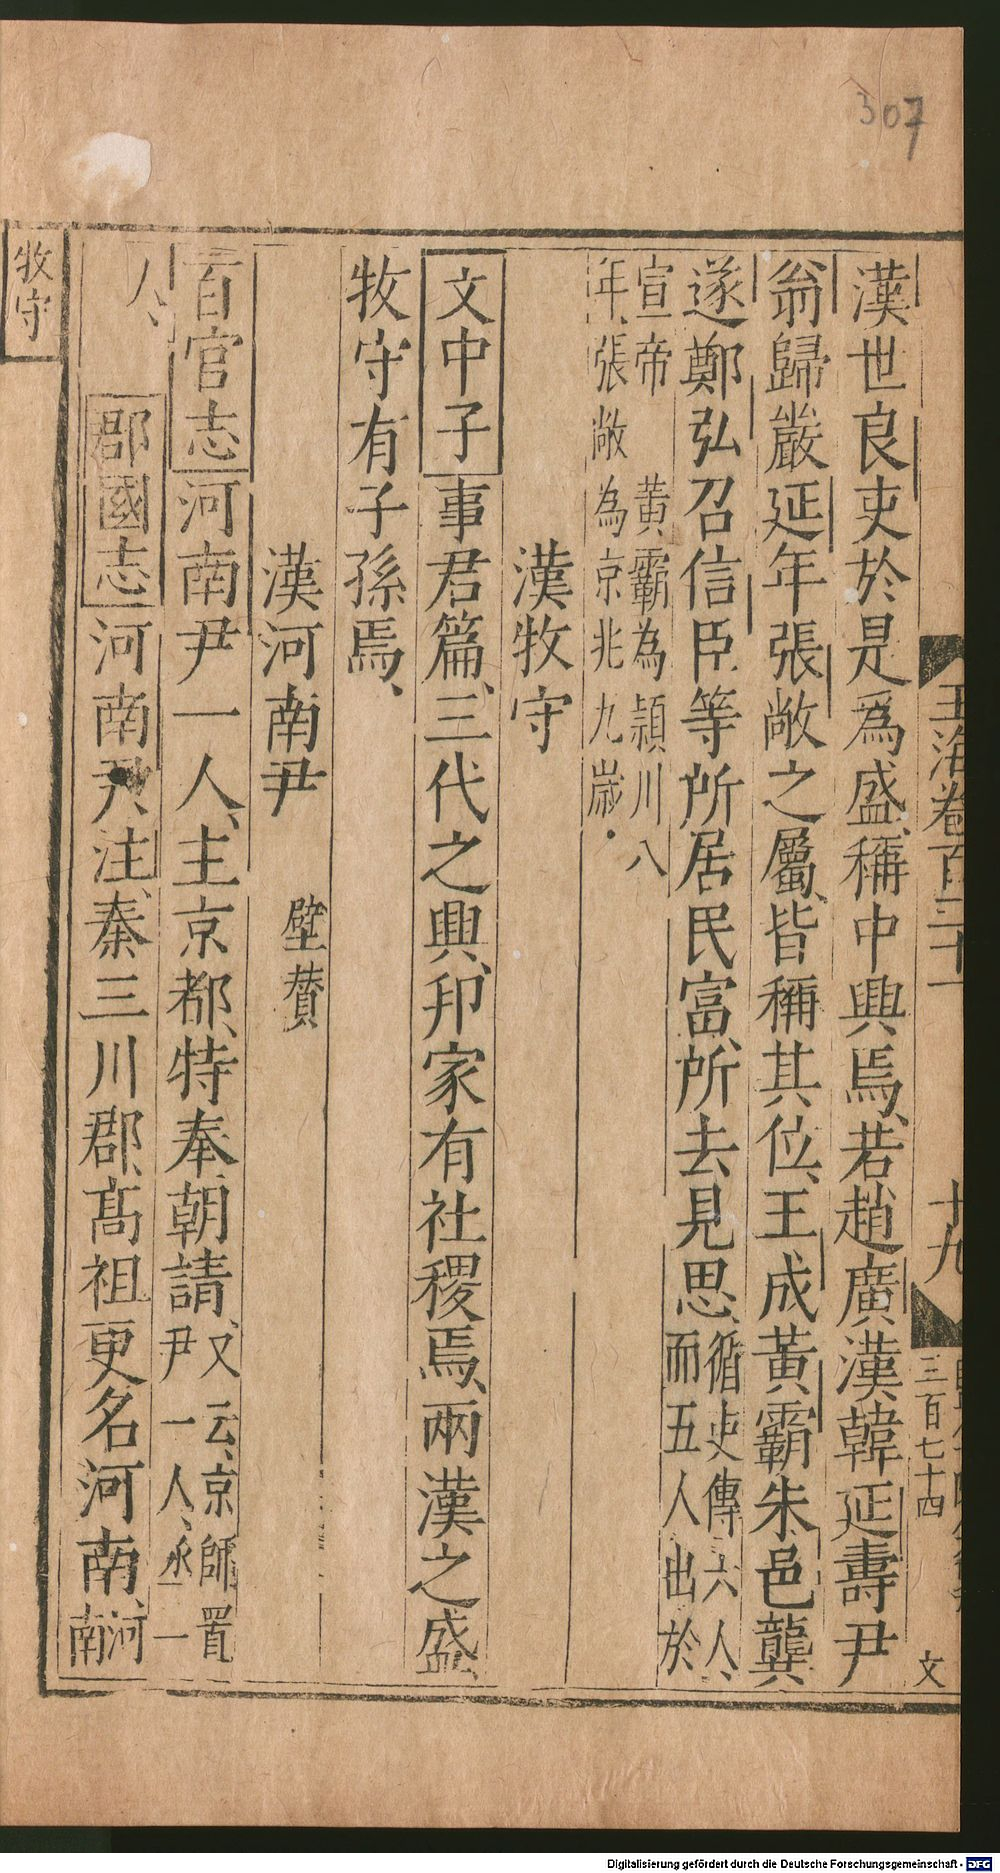 307
玉海卷百三十一
十九
三百七十四
文
漢世良吏於是爲盛、稱中興焉、若趙廣漢韓延壽尹
翁歸嚴延年張敞之屬、皆稱其位、王成黃霸朱邑龔
遂鄭弘召信臣等所居民富、所去見思、循吏傳六人、
而五人出於
宣帝 黃霸為潁川八
年、張敞為京兆九嵗
漢牧守
文中子事君篇、三代之興、邦家有社稷焉、兩漢之盛、
牧守有子孫焉、
漢河南尹 壁贊
百官志河南尹一人、主京都、特奉朝請、又云、京師置
尹一人、丞一
人、 郡國志河南尹、注、秦三川郡、髙祖更名河南、河
南
牧守
Digitalisierung gefördert durch die Deutsche Forschungsgemeinschaft - DFG